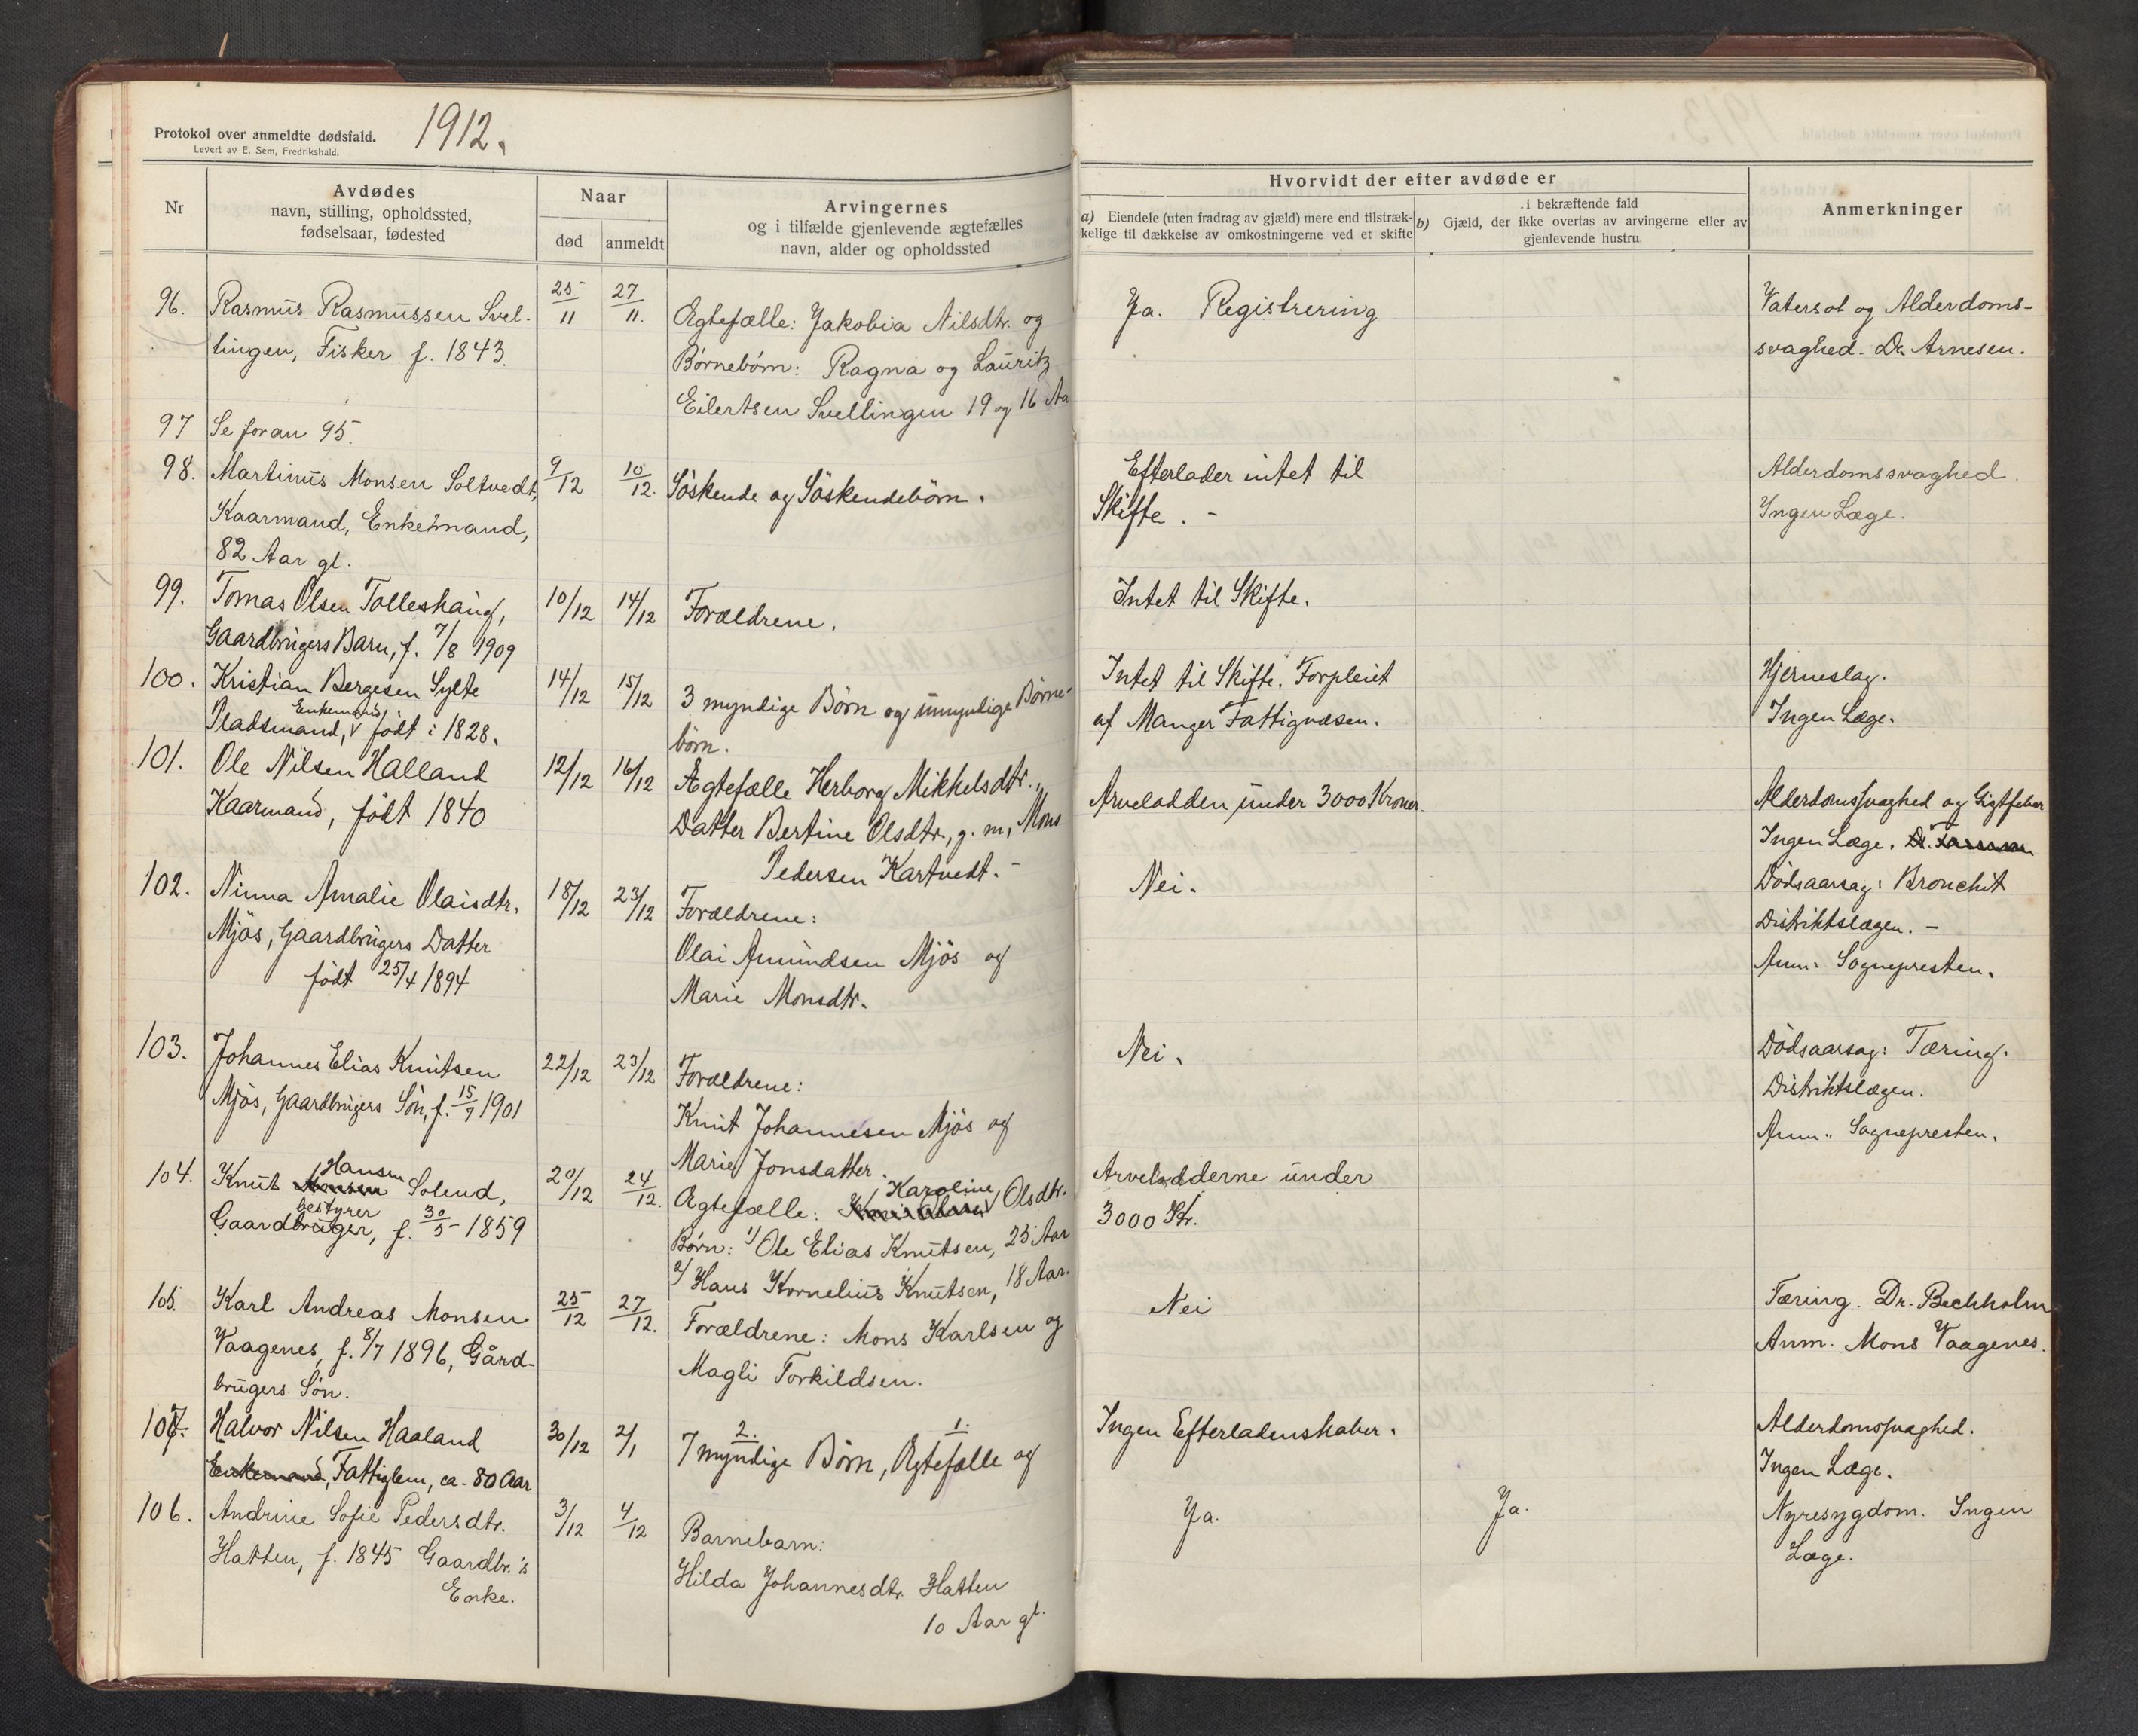 Protokol over anmeldte dødsfald. 1912.
Levert av E. Sem, Fredrikshald.
Nr
Avdødes
navn, stilling, opholdssted,
fødselsaar, fødested
Naar
død anmeldt
Arvingernes
og i tilfælde gjenlevende ægtefælles
navn, alder og opholdssted
Hvorvidt der efter avdøde er
a) Eiendele (uten fradrag av gjæld) mere end tilstræk-
kelige til dækkelse av omkostningerne ved et skifte
i bekræftende fald
b) Gjæld, der ikke overtas av arvingerne eller av
gjenlevende hustru
Anmerkninger
96. Rasmus Rasmussen Svel-
lingen, Fisker f. 1843.
25/11 27/11.
Ægtefælle: Jakobia Nilsdtr. og
Børnebørn: Ragna og Lauritz
Eilertsen Svellingen 19 og 16 Aa
Ja. Registrering
Vatersot og Alderdoms-
svaghed. Dr. Arnesen.
97 Se foran 95.
98. Martinus Monsen Soltvedt,
Kaarmand, Enkemand,
82 Aar gl.
9/12 10/12.
Söskende og Söskendebörn.
Efterlader intet til
Skifte. -
Alderdomssvaghed.
Ingen Læge.
99. Tomas Olsen Tolleshaug,
Gaardbrugers Barn, f. 7/8 1909
10/12 14/12
Forældrene.
Intet til Skifte.
100. Kristian Bergesen Sylte
Enkemand
Pladsmand, født i 1828.
14/12 15/12
3 myndige Börn og umyndige Börne-
börn.
Intet til Skifte. Forpleiet
af Manger Fattigvæsen.
Hjerneslag.
Ingen Læge.
101. Ole Nilsen Halland
Kaarmand, født 1840
12/12 16/12
Ægtefælle Herborg Mikkelsdtr.,
Datter Bertine Olsdtr., g. m. Mons
Pedersen Kartvedt. -
Arveladden under 3000 Kroner.
Alderdomssvaghed og Gigtfeber
Ingen Læge. Dr.
102. Ninna Amalie Olaisdtr.
Mjös, Gaardbrugers Datter
født 25/4 1894
18/12 23/12
Forældrene:
Olai Amundsen Mjös og
Marie Monsdtr.
Nei.
Dödsaarsag: Bronchit
Distriktslægen. -
Anm: Sognepresten.
103. Johannes Elias Knutsen
Mjös, Gaardbrugers Sön, f. 15/9 1901
22/12 23/12
Forældrene:
Knut Johannesen Mjös og
Marie Jonsdatter.
Nei.
Dödsaarsag: Tæring.
Distriktslægen.
Anm: Sognepresten.
Hansen
104. Knut Solend,
bestyrer
Gaardbruger, f. 30/5 1859
20/12 24/12.
Karoline
Ægtefælle: Olsdtr.
Børn: 1/ Ole Elias Knutsen, 23 Aar
2/ Hans Kornelius Knutsen, 18 Aar.
Arveladderne under
3000 Kr.
105. Karl Andreas Monsen
Vaagenes, f. 8/7 1896, Gård-
brugers Søn.
25/12 27/12.
Forældrene: Mons Karlsen og
Magli Torkildsen.
Nei
Tæring. Dr. Bechholm
Anm. Mons Vaagenes.
107. Halvor Nilsen Haaland
Enkemand, Fattiglem, ca. 80 Aar
30/12 2/1
2. 1.
7 myndige Börn, Ægtefælle og
Ingen Efterladenskaber.
Alderdomssvaghed.
Ingen Læge.
106. Andrine Sofie Pedersdtr.
Hatten, f. 1845 Gaardbr.'s
Enke.
3/12 4/12
Barnebarn:
Hilda Johannesdtr. Hatten
10 Aar gl.
Ja. Ja.
Nyresygdom. Ingen
Læge.